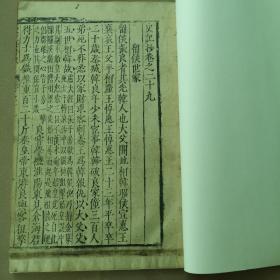 史記抄卷之二十九
留侯世家
留侯張良者其先韓人也大父開地相韓昭侯宣惠王
襄哀王父平相釐王悼惠王二十三年平卒卒
二十歲秦滅韓良年少未宦事韓韓破良家僮三百人
弟死不葬悉以家財求客刺秦王為韓報仇以大父父
五世相韓故
良嘗學禮淮陽東見倉海君
得力士為鐵椎重百二十斤秦皇帝東游良與客狙擊